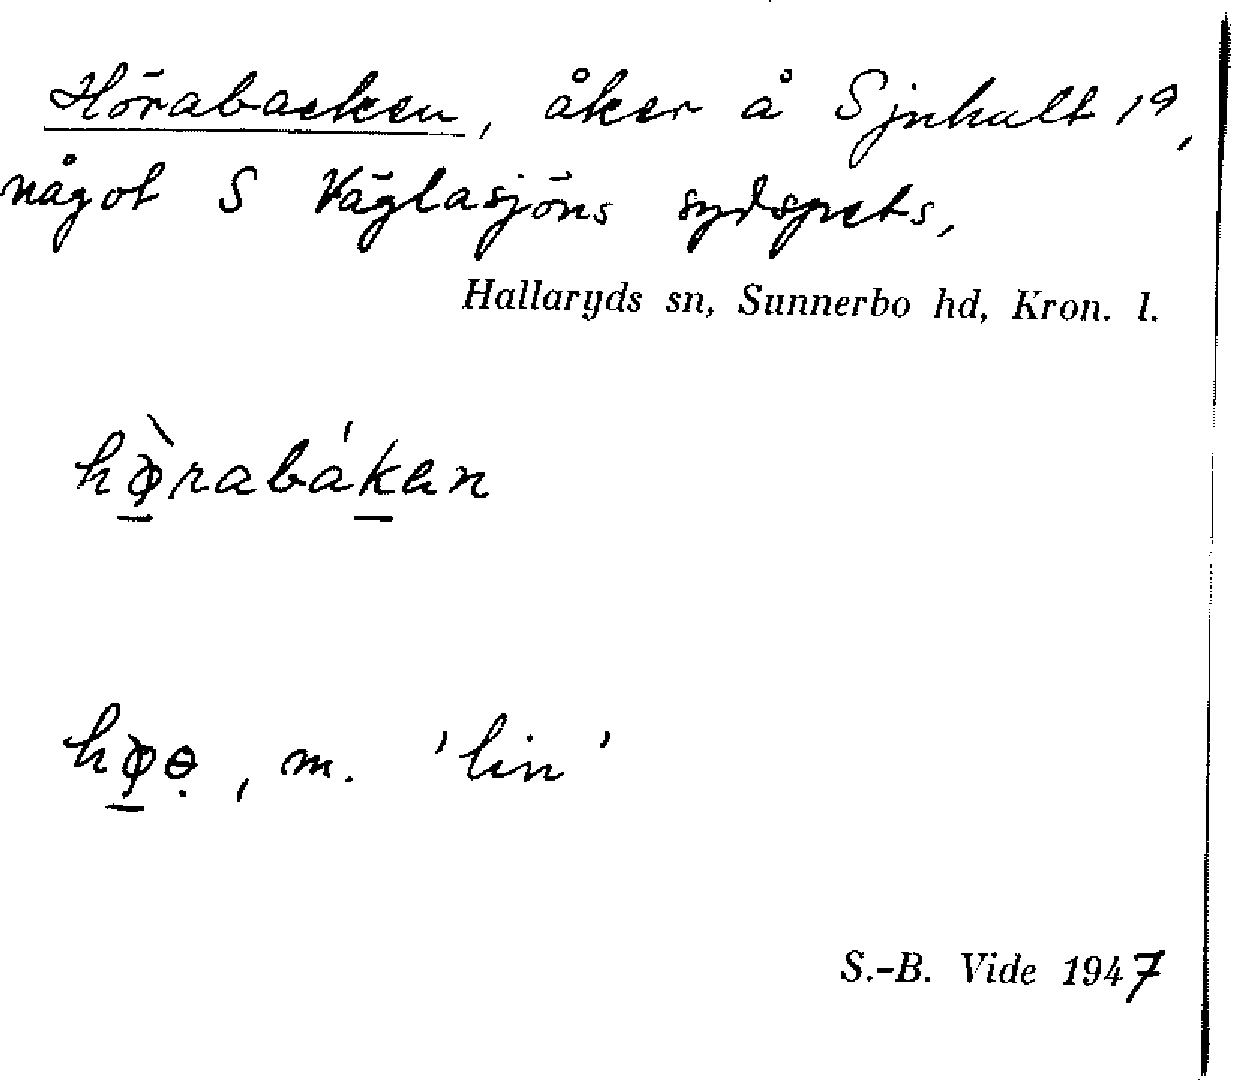 Hörabacken, åker å Sjnhult 19,
något S Väglasjöns sydspets,
Hallaryds sn, Sunnerbo hd, Kron. l.
hø̀rabákan
høə̣, m. 'lin'
S.-B. Vide 1947